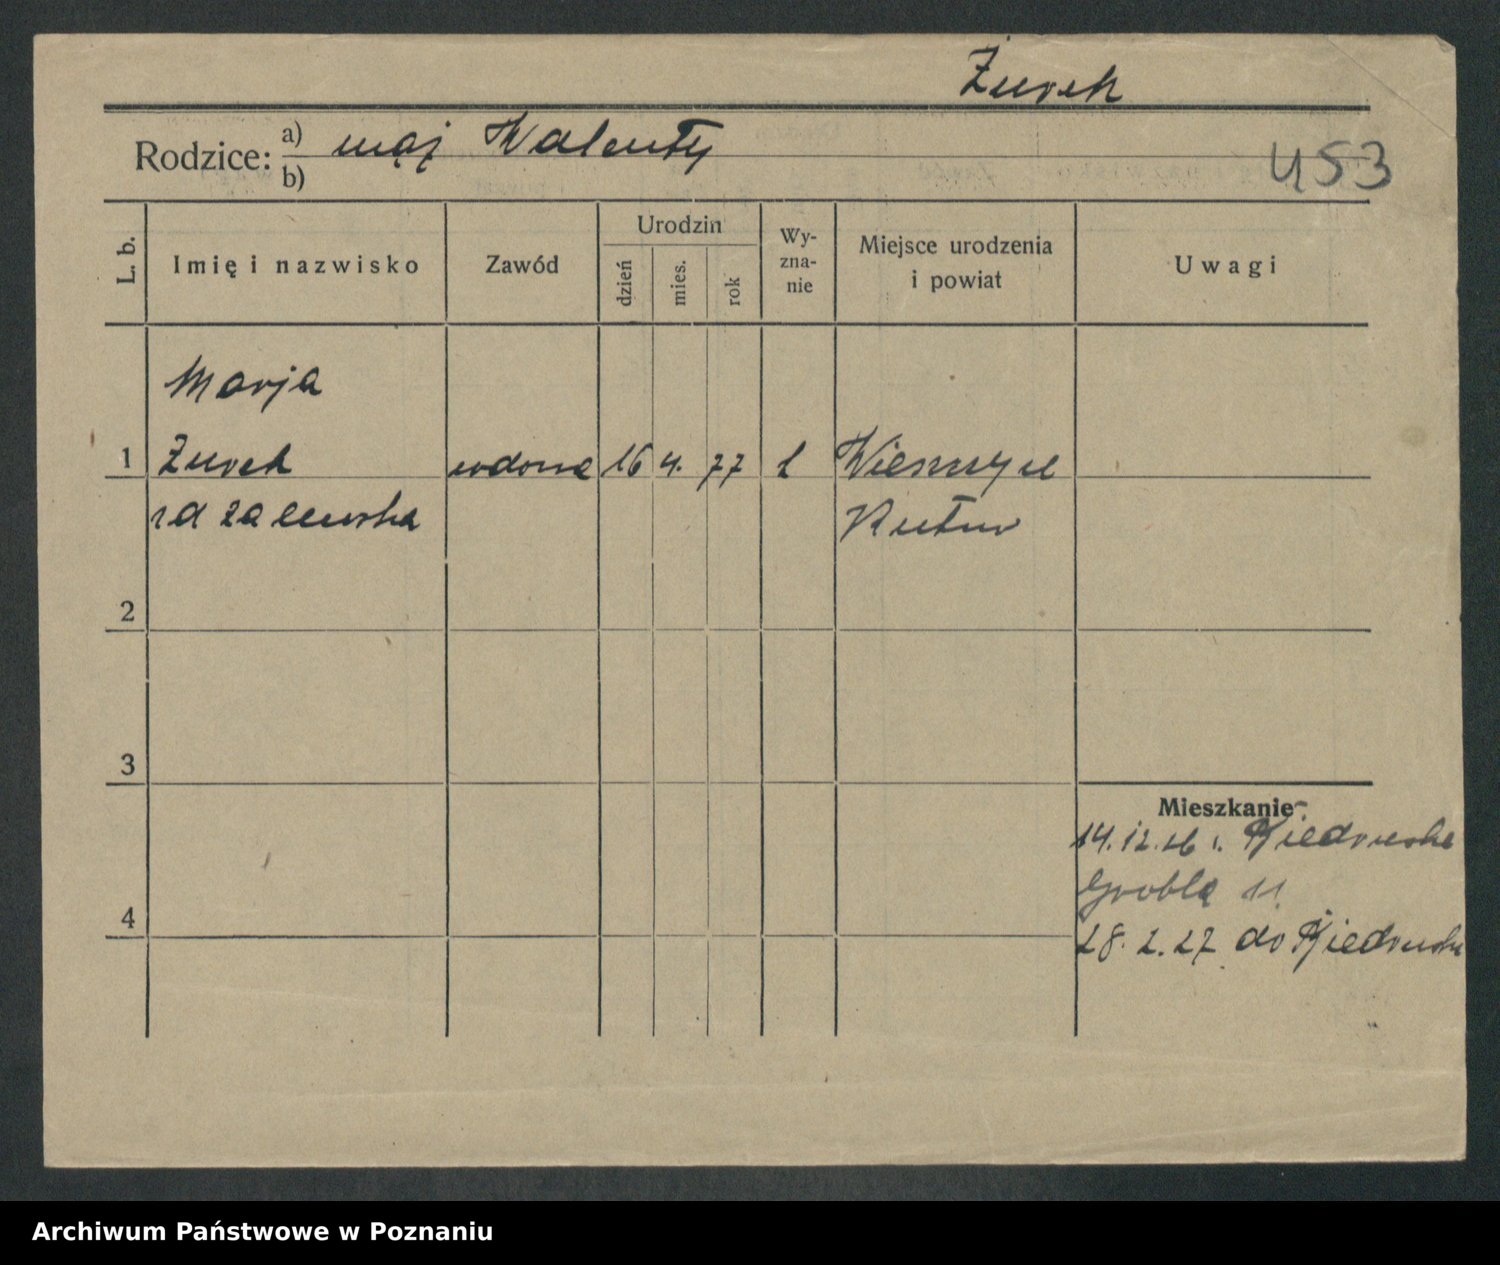 Żurek
Rodzice: a) mąż Walenty
b)
453
L. b. Imię i nazwisko Zawód Urodzin dzień mies. rok Wy-zna-nie Miejsce urodzenia i powiat Uwagi
Marja
1 Żurek wdowa 16 4. 77 k
zd Zalewska Kutno
2
3
Mieszkanie:
14.12.26
Grobla 11
4
28. 2. 27 do
Archiwum Państwowe w Poznaniu